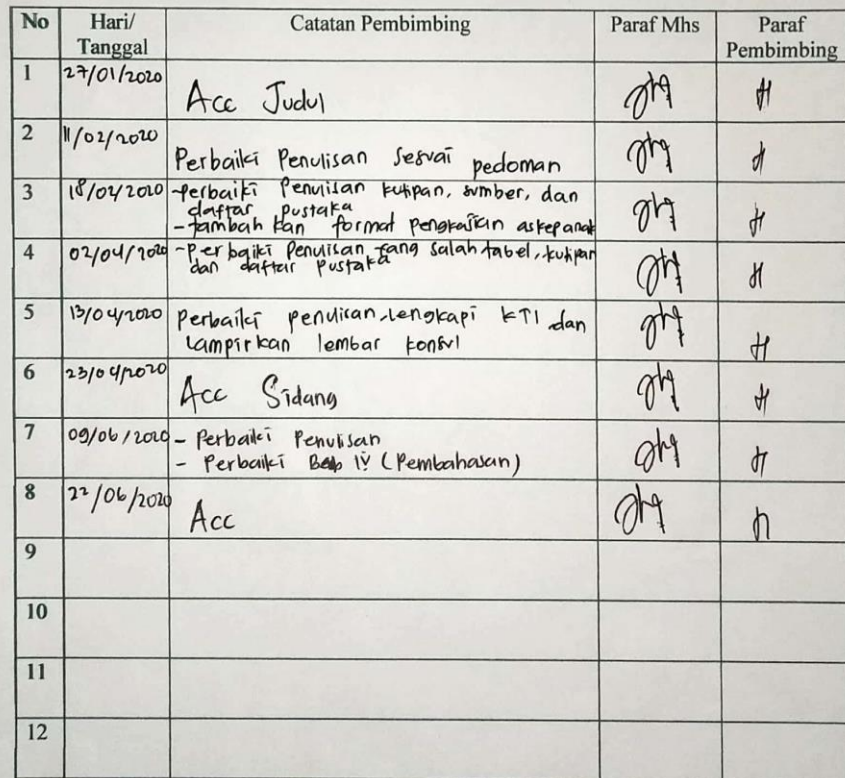 No Hari/ Catatan Pembimbing Paraf Mhs Paraf
Tanggal Pembimbing
1 27/01/2020
Acc Judul
2 11/02/2020
Perbaiki Penulisan Sesuai pedoman
3 18/02/2020 -Perbaiki Penulisan kutipan, sumber, dan
daftar pustaka
-tambah kan format pengkajian askep anak
4 02/04/2020 -Perbaiki Penulisan yang salah tabel, kutipan
dan daftar pustaka
5 13/04/2020 Perbaiki penulisan, lengkapi KTI dan
Lampirkan lembar konsul
6 23/04/2020
Acc Sidang
7 09/06/2020 - Perbaiki Penulisan
- Perbaiki Bab IV (Pembahasan)
8 22/06/2020
Acc
9
10
11
12